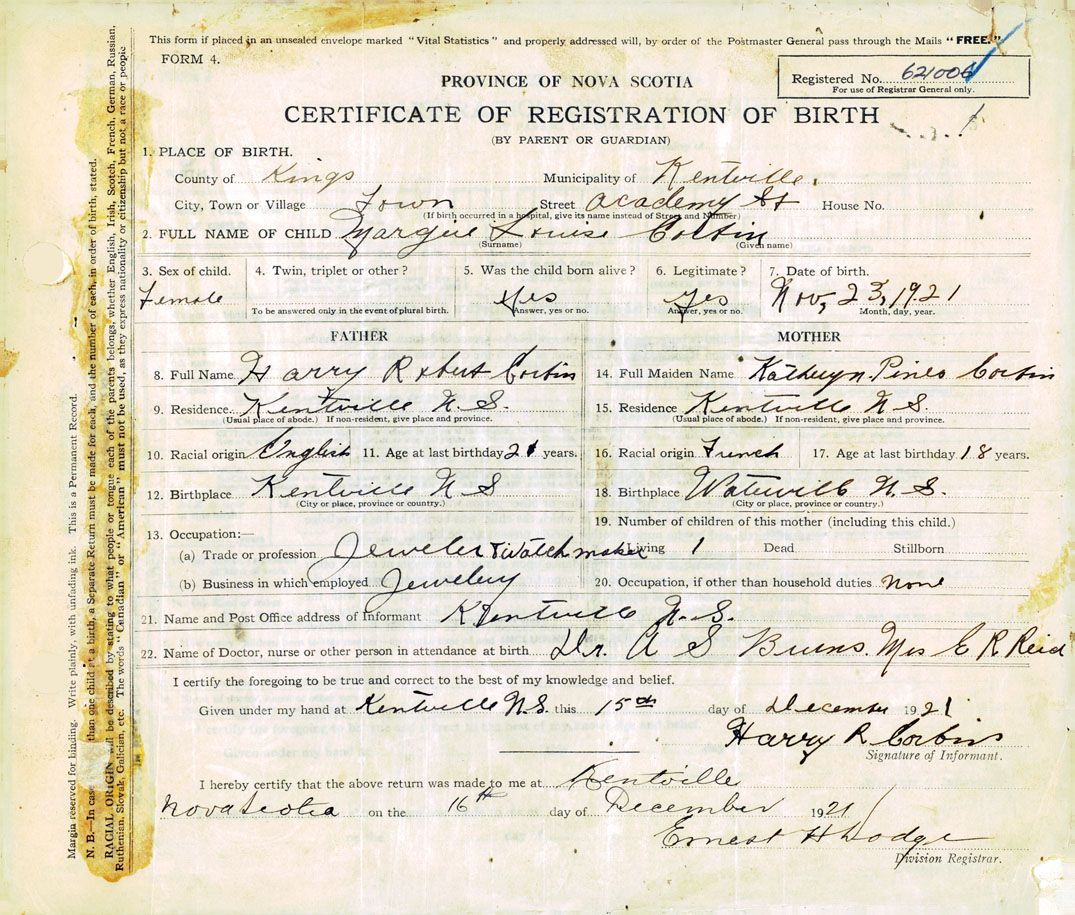 This form if placed in an unsealed envelope marked "Vital Statistics" and properly addressed will, by order of the Postmaster General pass through the Mails "FREE."
FORM 4.
Registered No. 621006
For use of Registrar General only.
PROVINCE OF NOVA SCOTIA
CERTIFICATE OF REGISTRATION OF BIRTH
(BY PARENT OR GUARDIAN)
1. PLACE OF BIRTH.
County of Kings Municipality of Kentville
City, Town or Village Town Street Academy St House No.
(If birth occurred in a hospital, give its name instead of Street and Number)
2. FULL NAME OF CHILD Margue Louise Corbin
(Surname) (Given name)
3. Sex of child. 4. Twin, triplet or other? 5. Was the child born alive? 6. Legitimate? 7. Date of birth.
Female Yes Yes Nov, 23, 1921
To be answered only in the event of plural birth. Answer, yes or no. Answer, yes or no. Month, day, year.
FATHER MOTHER
8. Full Name Harry Robert Corbin 14. Full Maiden Name Kathryn Pineo Corbin
9. Residence. Kentville N.S. 15. Residence Kentville N.S.
(Usual place of abode.) If non-resident, give place and province. (Usual place of abode.) If non-resident, give place and province.
10. Racial origin English 11. Age at last birthday 21 years. 16. Racial origin French 17. Age at last birthday 18 years.
12. Birthplace Kentville N S 18. Birthplace Waterville N.S.
(City or place, province or country.) (City or place, province or country.)
13. Occupation:— 19. Number of children of this mother (including this child.)
(a) Trade or profession Jeweler & Watchmaker Living 1 Dead Stillborn
(b) Business in which employed Jewelery 20. Occupation, if other than household duties none
21. Name and Post Office address of Informant Kentville N.S.
22. Name of Doctor, nurse or other person in attendance at birth Dr. A S Burns. Mrs C R Reid
I certify the foregoing to be true and correct to the best of my knowledge and belief.
Given under my hand at Kentville N.S. this 15th day of December 1921
Harry R Corbin
Signature of Informant.
I hereby certify that the above return was made to me at Kentville
Nova Scotia on the 16th day of December 1921
Ernest H Dodge
Division Registrar.
Margin reserved for binding. Write plainly, with unfading ink. This is a Permanent Record.
N. B.—In case than one child at a birth, a Separate Return must be made for each, and the number of each, in order of birth, stated.
RACIAL ORIGIN will be described by stating to what people or tongue each of the parents belongs, whether English, Irish, Scotch, French, German, Russian,
Ruthenian, Slovak, Galician, etc. The words "Canadian" or "American" must not be used, as they express nationality or citizenship but not a race or people